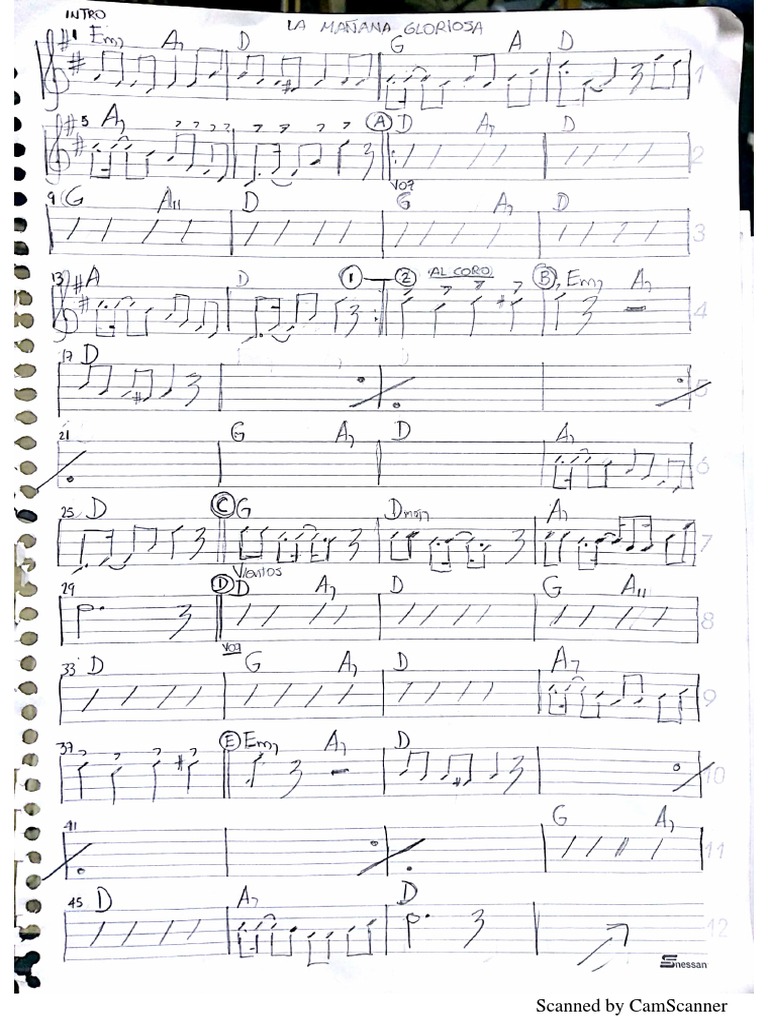 INTRO
LA MAÑANA GLORIOSA
1 Em7 A7 D G A D 1
5 A7 A D A7 D 2
Voz
9 G A11 D G A7 D 3
13 A D 1 2 AL CORO B Em7 A7 4
17 D 5
21 G A7 D A7 6
25 D C G Dmaj7 A7 7
Vientos
29 D D A7 D G A11 8
Voz
33 D G A7 D A7 9
37 E Em7 A7 D 10
41 G A7 11
45 D A7 D 12
Snessan
Scanned by CamScanner